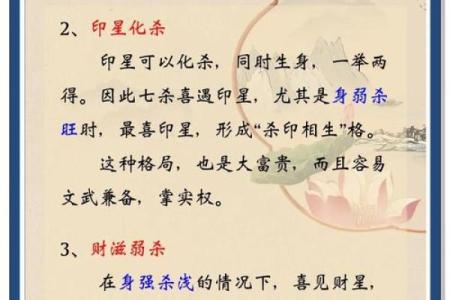 2、印星化杀
印星可以化杀，同时生身，一举两
得。因此七杀喜遇印星，尤其是身弱杀
旺时，最喜印星，形成“杀印相生”格。
这种格局，也是大富贵，而且容易
文武兼备，掌实权。
3、财滋弱杀
在身强杀浅的情况下，喜见财星，